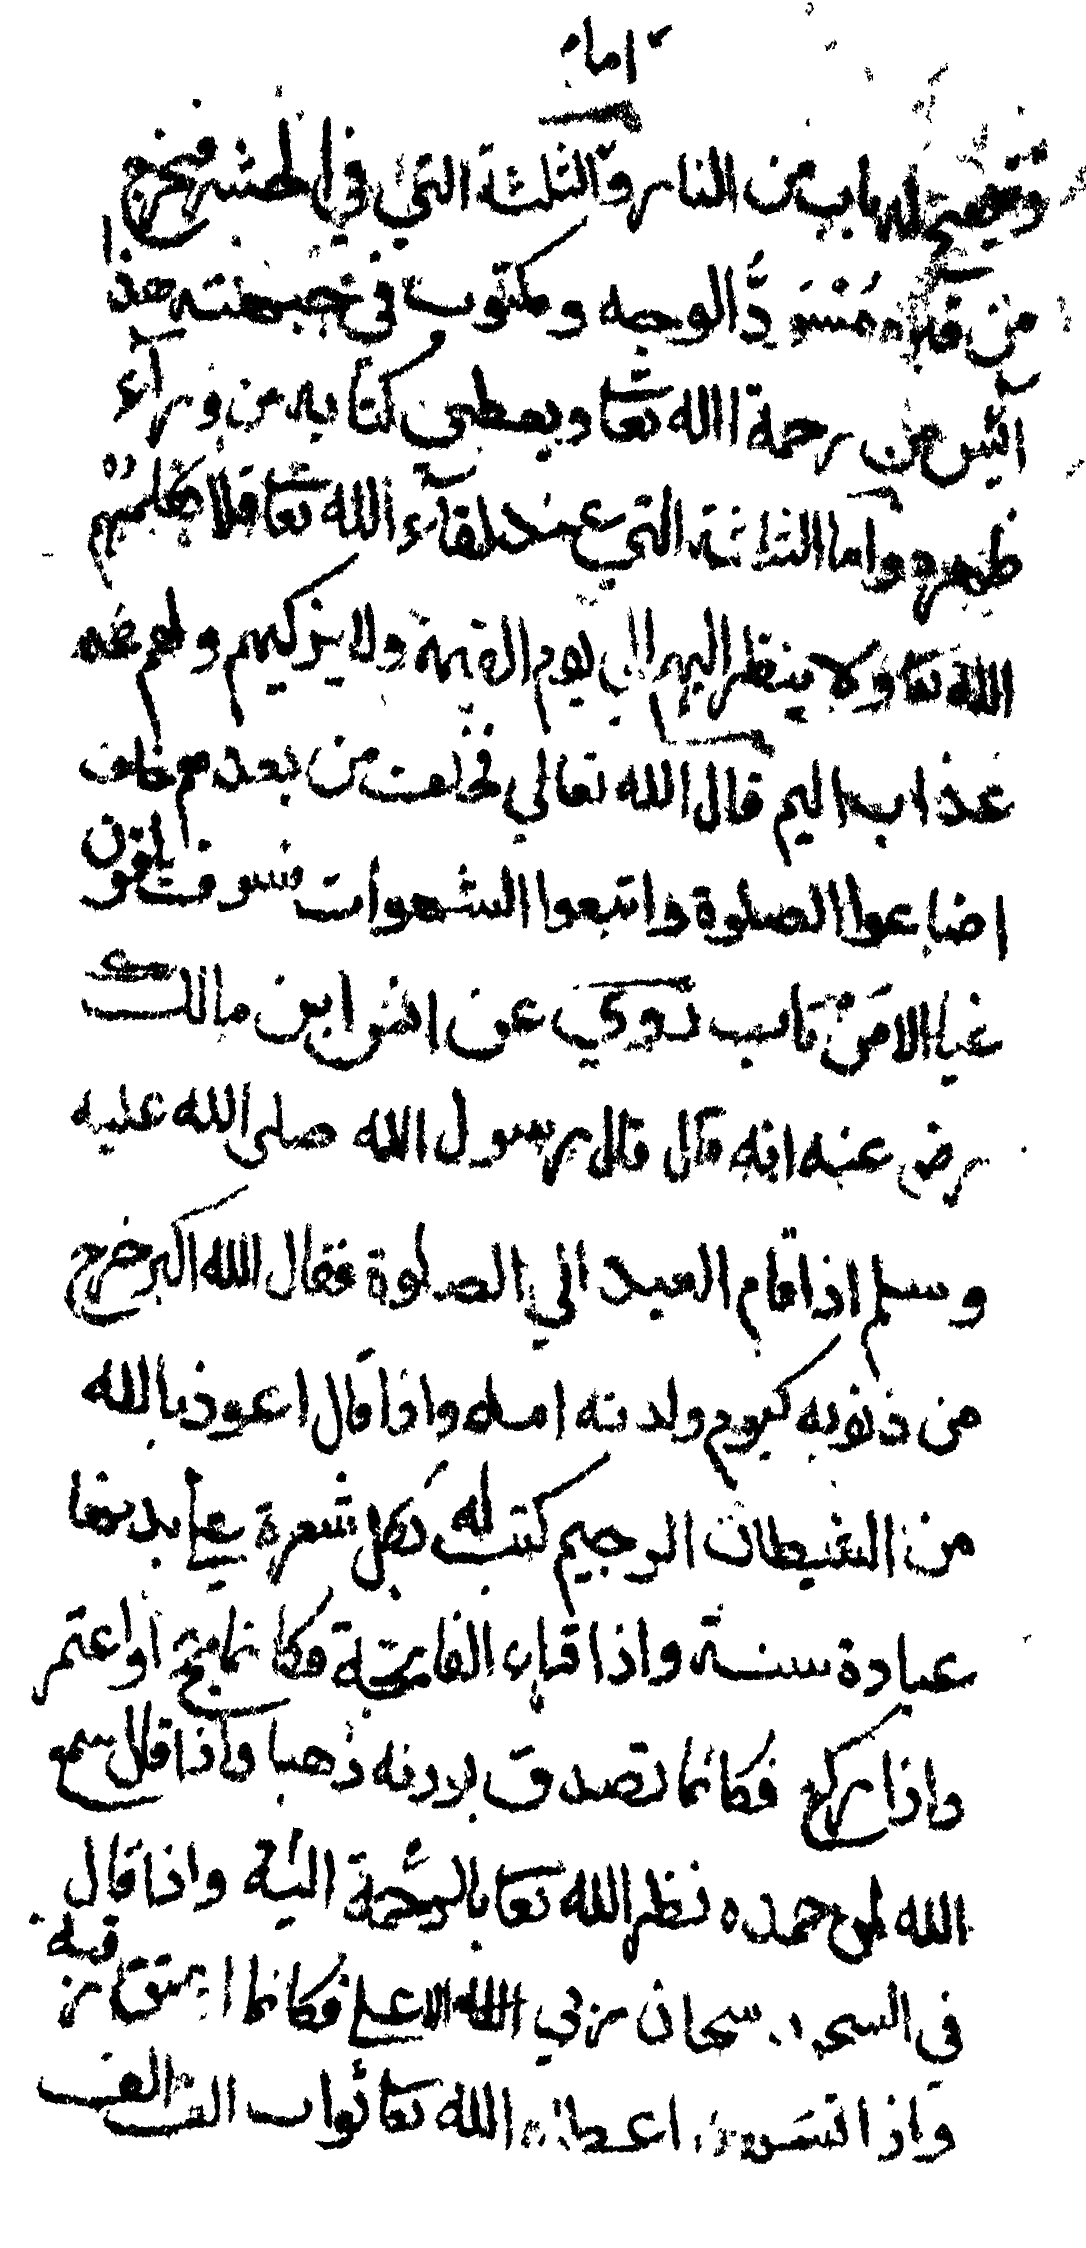 اما
ويفتح له باب من النار والثلثة التي في الحشر فيخرج
من قبره مُسْوَدُّ الوجه ومكتوب في جبهته هذا
آئس من رحمة الله تعا ويعطى كتابه من ورآء
ظهره واما الثلثة التي عند لقآء الله تعا فلا يكلمهم
الله تعا ولا ينظر اليهم يوم القيمة ولا يزكيهم ولهم
عذاب اليم قال الله تعالي فخلف من بعدهم خلف
اضاعوا الصلوة واتبعوا الشهوات فسوف يلقون
غيا الا من تاب روي عن انس ابن مالك
رض عنه انه قال قال رسول الله صلى الله عليه
وسلم اذا قام العبد الي الصلوة فقال الله اكبر خرج
من ذنوبه كيوم ولدته امه واذا قال اعوذ بالله
من الشيطان الرجيم كتب له بكل شعرة علي بدنها
عبادة سنة واذا قراء الفاتحة فكانما حج او اعتمر
واذا ركع فكانما تصدق بوزنه ذهبا واذا قال سمع
الله لمن حمده نظر الله تعا بالرحمة اليه واذا قال
في السجود سبحان ربي الله الاعلي فكانما اعتق رقبة
واذا تشهد اعطاه الله تعا ثواب الف الف